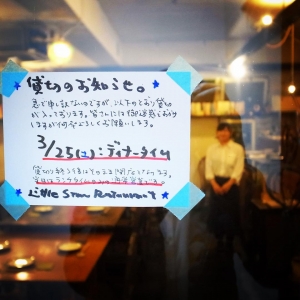 貸切のお知らせ。
急で申し訳ないのですが、以下のとおり貸切
が入っております。皆さんには御迷惑をおかけ
しますが何卒よろしくお願いします。
3/25(土):ディナータイム
貸切り終了後はそのまま閉店
Little Star Restaurant